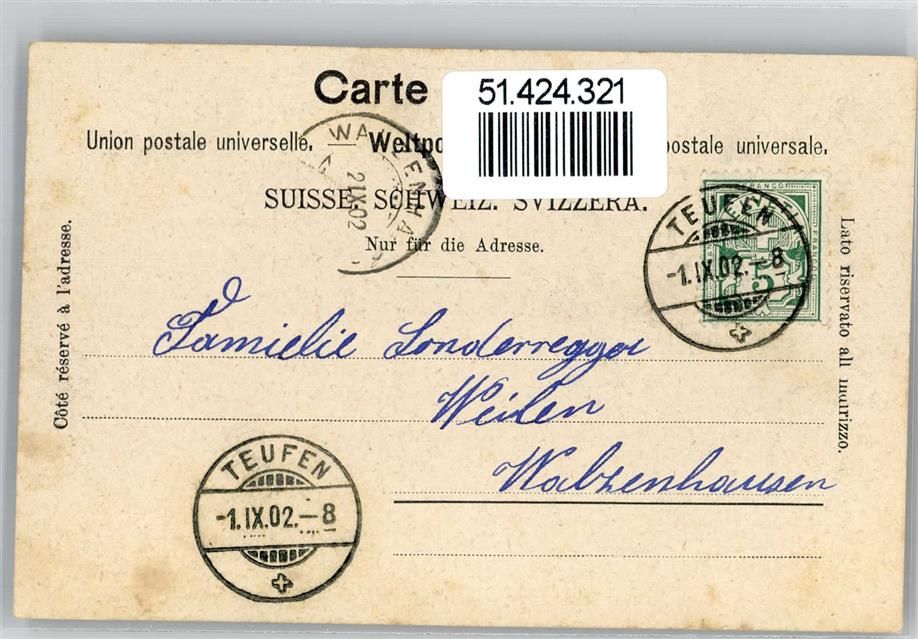 Carte
51.424.321
Union postale universelle. — Weltpo postale universale.
SUISSE. SCHWEIZ. SVIZZERA.
Nur für die Adresse.
Côté réservé à l'adresse.
Lato riservato all indirizzo.
WALZENHA
2 IX 02
FRANCO
FRANCO
5
TEUFEN
-1.IX.02.-8
Familie Sonderregger
Weilen
Walzenhausen
TEUFEN
-1.IX.02.-8